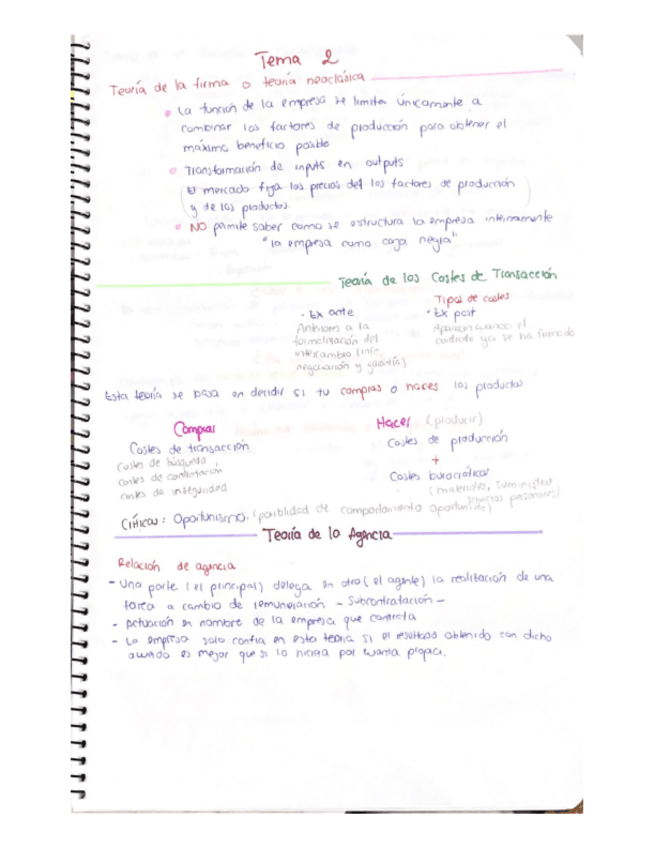 Tema 2
Teoría de la firma o teoría neoclásica
La función de la empresa se limita únicamente a
combinar los factores de producción para obtener el
máximo beneficio posible
Transformación de inputs en outputs
(El mercado fija los precios del los factores de producción
y de los productos.)
NO permite saber como se estructura la empresa internamente
"la empresa como caja negra"
Teoría de los Costes de Transacción
Tipos de costes
· Ex ante
· Ex post
Anteriores a la
formalización del
intercambio (info,
negociación y garantía)
Aparecen cuando el
contrato ya se ha firmado
Esta teoría se basa en decidir si tu compras o haces los productos
Comprar
Costes de transacción
costes de búsqueda
costes de contratación
costes de inseguridad
Hacer (producir)
Costes de producción
+
Costes burocráticos
(materiales, suministros
recursos personales)
Críticas: Oportunismo. (posiblidad de comportamiento oportunista)
Teoría de la Agencia
Relación de agencia
- Una parte (el principal) delega en otro (el agente) la realización de una
tarea a cambio de remuneración - Subcontratación -
- Actuación en nombre de la empresa que contrata
- La empresa solo confia en esta teoria si el resultado obtenido con dicho
acuerdo es mejor que si lo hiciera por cuenta propia.